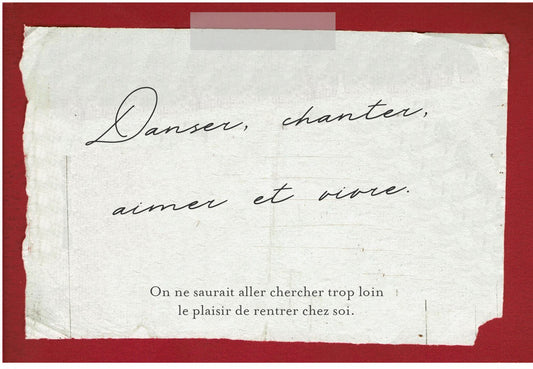 Danser, chanter,
aimer et vivre.
On ne saurait aller chercher trop loin
le plaisir de rentrer chez soi.